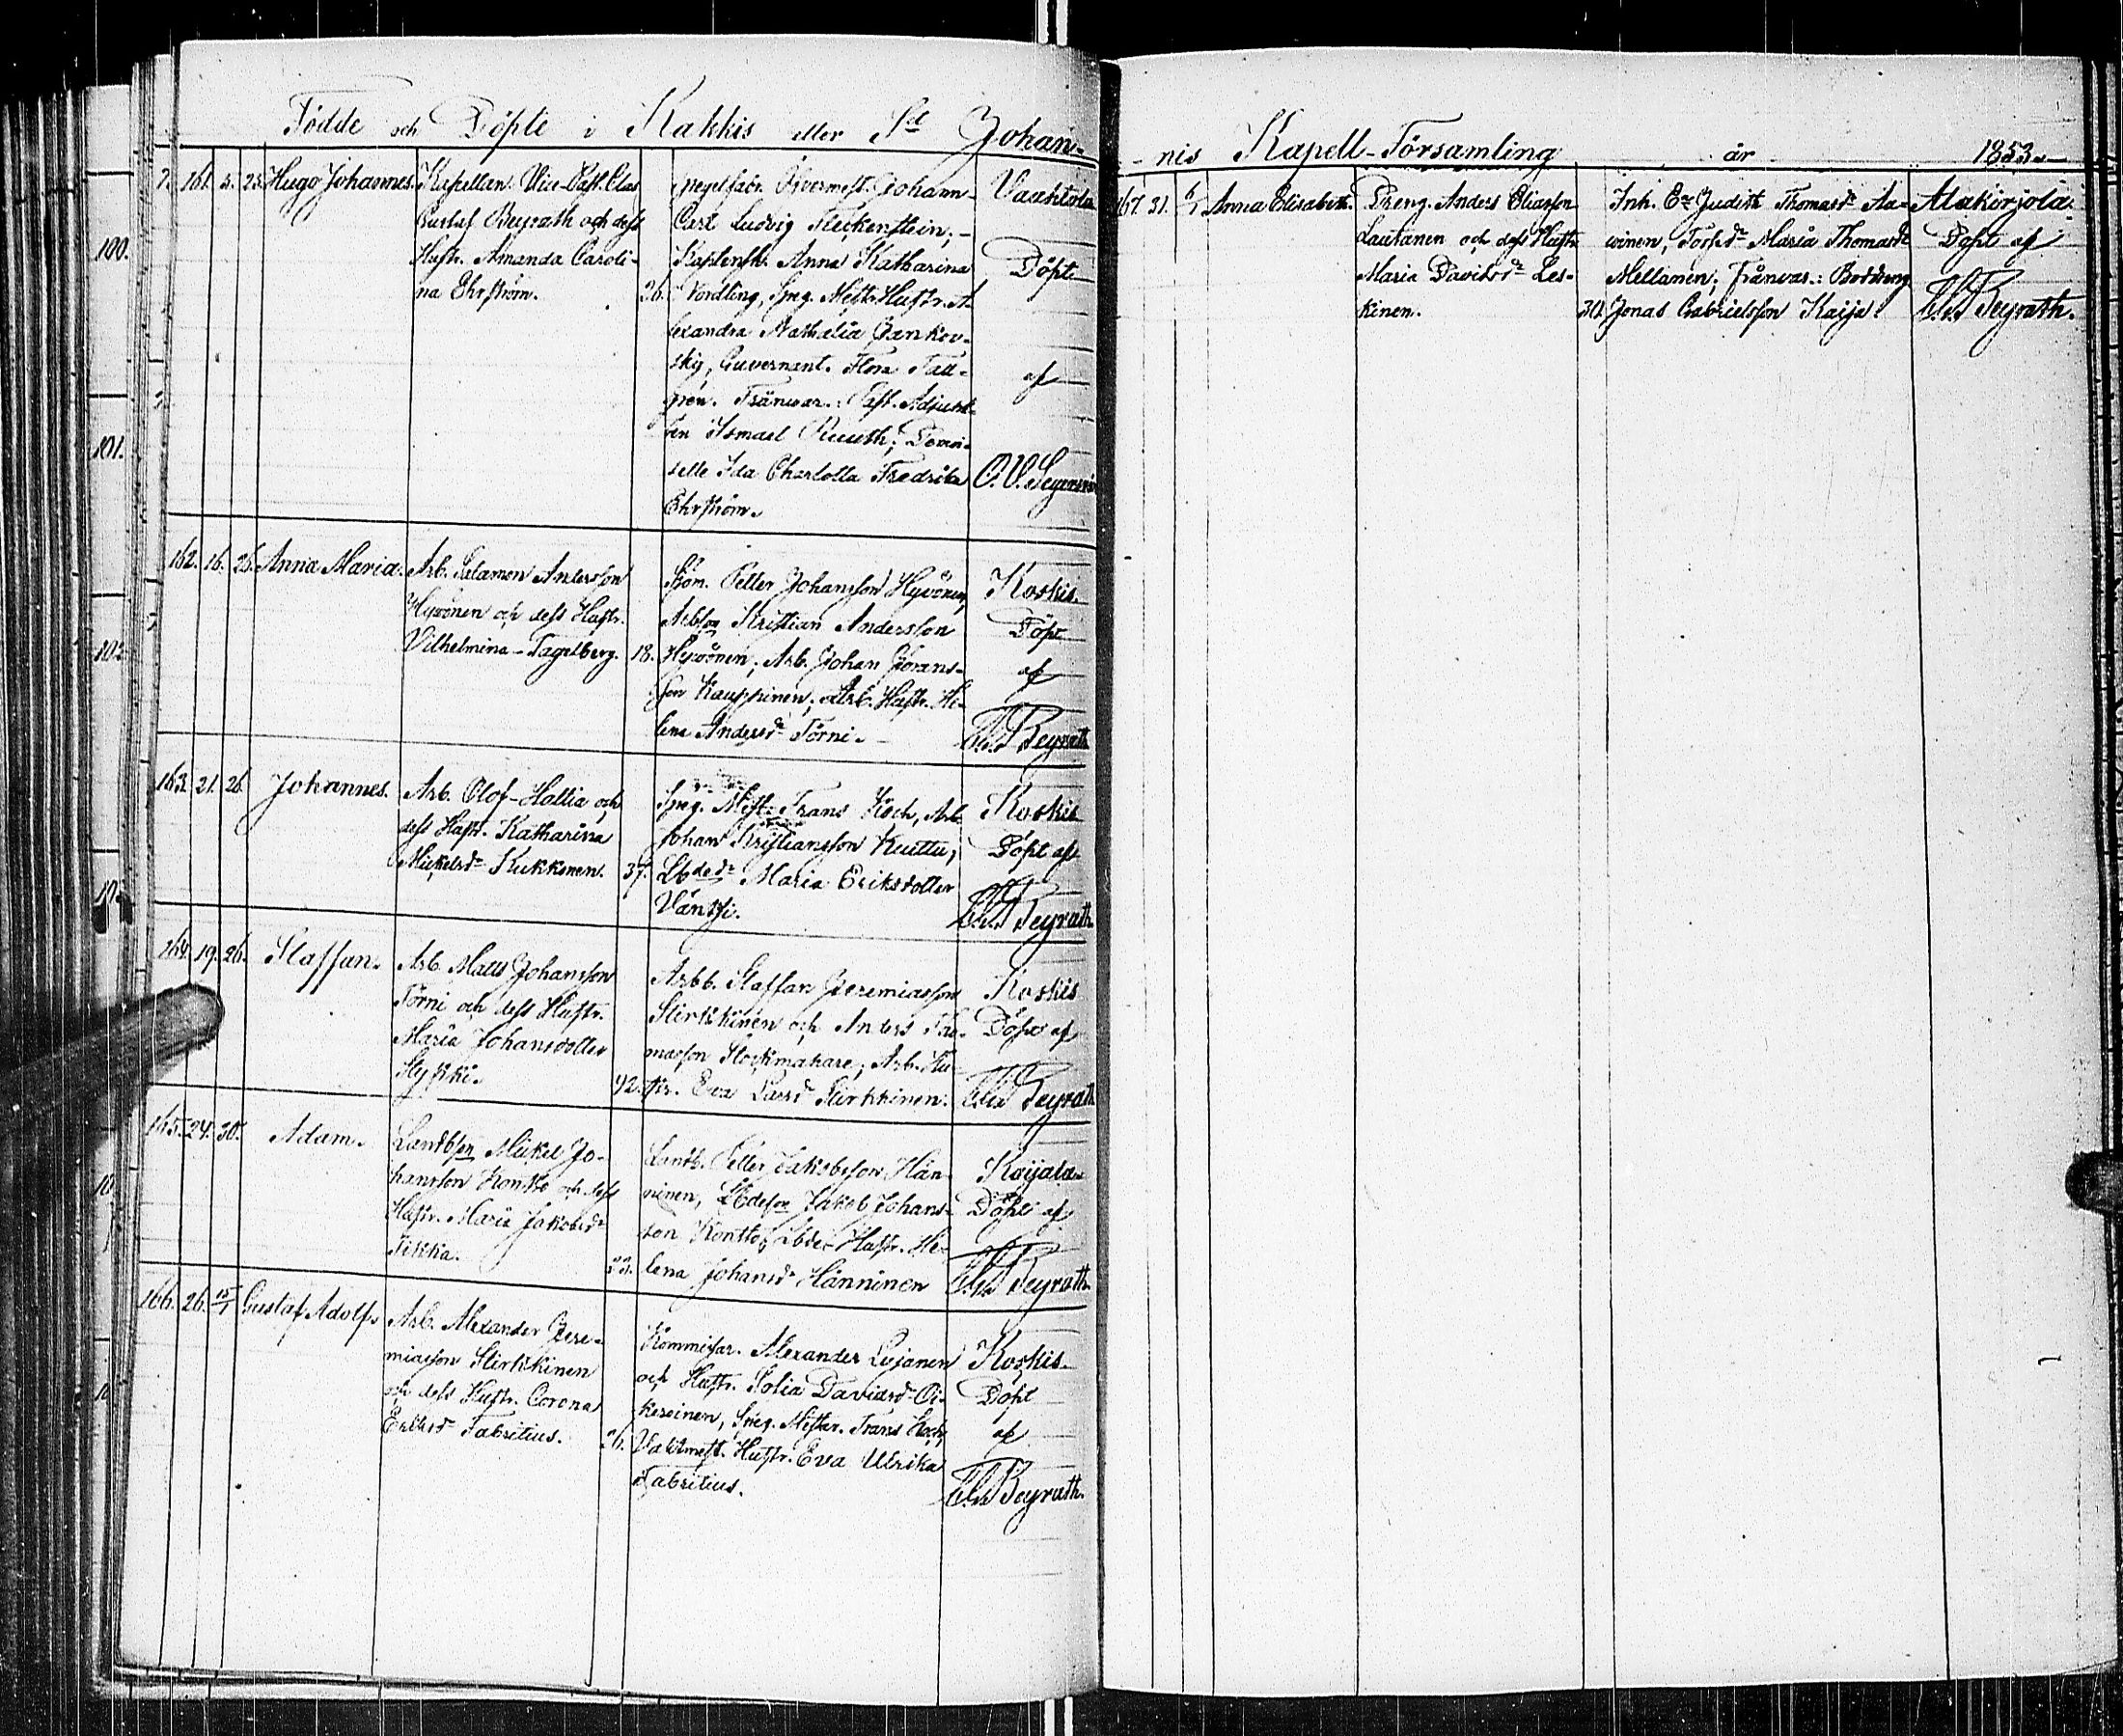 Födde och Döpte i Kakkis eller S:t Johan-
161. 5. 25. Hugo Johannes.
Kapellan. Vice-Past. Clas
Gustaf Beyrath och dess
Hustr. Amanda Caroli-
na Ehrström.
26.
Spegelfabr. Öfvermest. Johann
Carl Ludvig Fleckenstein;
Kaptensk. Anna Katharina
Nordling, Speg. Mest. Hustr. A-
lexandra Nathalia Jankov-
sky, Guvernant. Flora Tall-
gren. Frånvar.: Past. Adjunk-
ten Ismael Ruuth; Demoi-
selle Ida Charlotta Fredrika
Ehrström.
Vaahtola
Döpt
af
162. 16. 26. Anna Maria.
Arb. Salamon Andersson
Hyvönen och dess Hustr.
Vilhelmina Tagelberg.
18.
Sjöm. Petter Johansson Hyvönen,
Arbson Kristian Andersson
Hyvönen; Arb. Johan Görans-
son Kauppinen; Arb. Hustr. He-
lena Andersdr Törni.
Koskis.
Döpt
af
Beyrath
163. 21. 26. Johannes.
Arb. Olof Hallia och
dess Hustr. Katharina
Mickelsdr Kukkonen.
37.
Speg. Mest. Frans Koch, Arb.
Johan Kristiansson Kuittu;
Lbdedr Maria Eriksdotter
Vänski.
Koskis
Döpt af
Beyrath.
164. 19. 26. Staffan.
Arb. Matts Johansson
Törni och dess Hustr.
Maria Johansdotter
42.
Arbb. Staffan Jeremiasson
Stirkkinen och Anders Tho-
masson Stockmakare; Arb. Hu-
str. Eva Larsdr Stirkkinen.
Koskis
Döpt af
Beyrath
165. 24. 30. Adam.
Landbson Mickel Jo-
hansson Kontto och dess
Hustr. Maria Jakobsdr
Tikka.
23.
Landb. Petter Jakobsson Hän-
ninen, Lbdeson Jakob Johans-
son Kontto; Lbde. Hustr. He-
lena Johansdr Hänninen
Kaijala
Döpt af
Beyrath.
166. 26. 15/1 Gustaf Adolf.
Arb. Alexander Jere-
miasson Stirkkinen
och dess Hustr. Corona
Eriksdr Fabritius.
26.
Kommissar. Alexander Lojanen
och Hustr. Sofia Davidsdr Oi-
keroinen, Speg. Mester. Frans Koch,
Vaktmest. Hustr. Eva Ulrika
Fabritius.
Koskis.
Döpt
af
Beyrath.
100.
101.
102.
-nis Kapell-Församling år 1853.
167. 31. 6/1 Anna Elisabeth.
Dreng. Anders Eliasson
Lautanen och dess Hustr.
Maria Davidsdr Les-
kinen.
30.
Inh. En. Judith Thomasdr Aa-
winen, Torpdr Maria Thomasdr
Mellanen; Frånvar.:
Jonas Gabrielsson Kaija.
Alakirjola.
Döpt af
Beyrath.